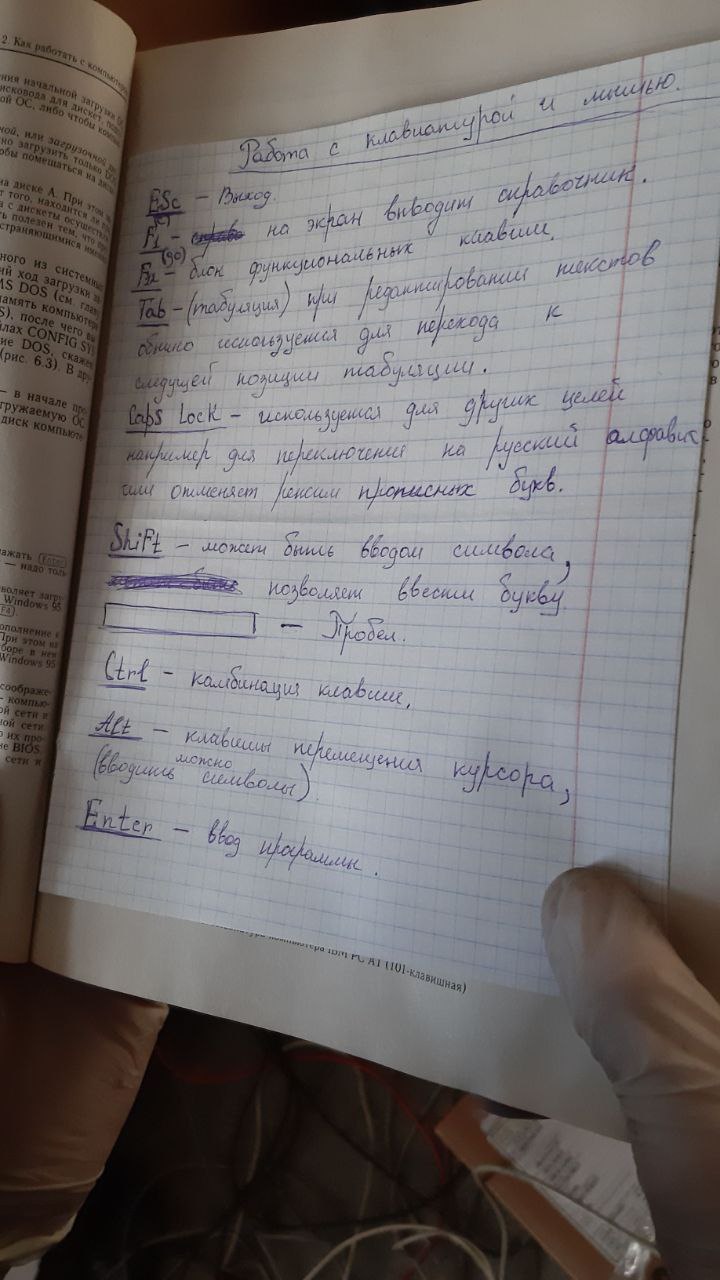 2. Как работать с компьютером
ния начальной загрузки
дисковода для дискет,
ой ОС, либо чтобы
ной, или загрузочной
но загрузить только
обы помещаться на
на диске A. При этом
т того, находится ли
а с дискеты осуществ
ть полезен тем, что
страняющимися
ного из системных
ий ход загрузки
MS DOS (см.
память компьютера
S), после чего
йлах CONFIG.SYS
ие DOS, скажем
(рис. 6.3). В
— в начале
гружаемую ОС
диск компьюте
ажать Enter
— надо толь
воляет загр
Windows 95
F4
ополнение к
При этом на
боре в нек
Windows 95
соображе-
- компью-
ой сети и
ной сети.
о их про-
ие BIOS.
сети и
Работа с клавиатурой и мышью.
ESc — Выход.
(с)
F1 — на экран вывводит справочник.
(до)
F12 — блок функциональных клавиш.
Tab — (табуляция) при редактировании текстов
обычно используется для перехода к
следущей позиции табуляции.
Caps Lock — используется для других целей
например для переключения на русский алфавит
или отменяет режим прописных букв.
ShiFt — может быть вводом символа,
позволяет ввести букву
— Пробел.
Ctrl — комбинация клавиш.
Alt — клавишы перемещения курсора,
можно
(вводить символы).
Enter — ввод программы.
компьютера IBM PC AT (101-клавишная)